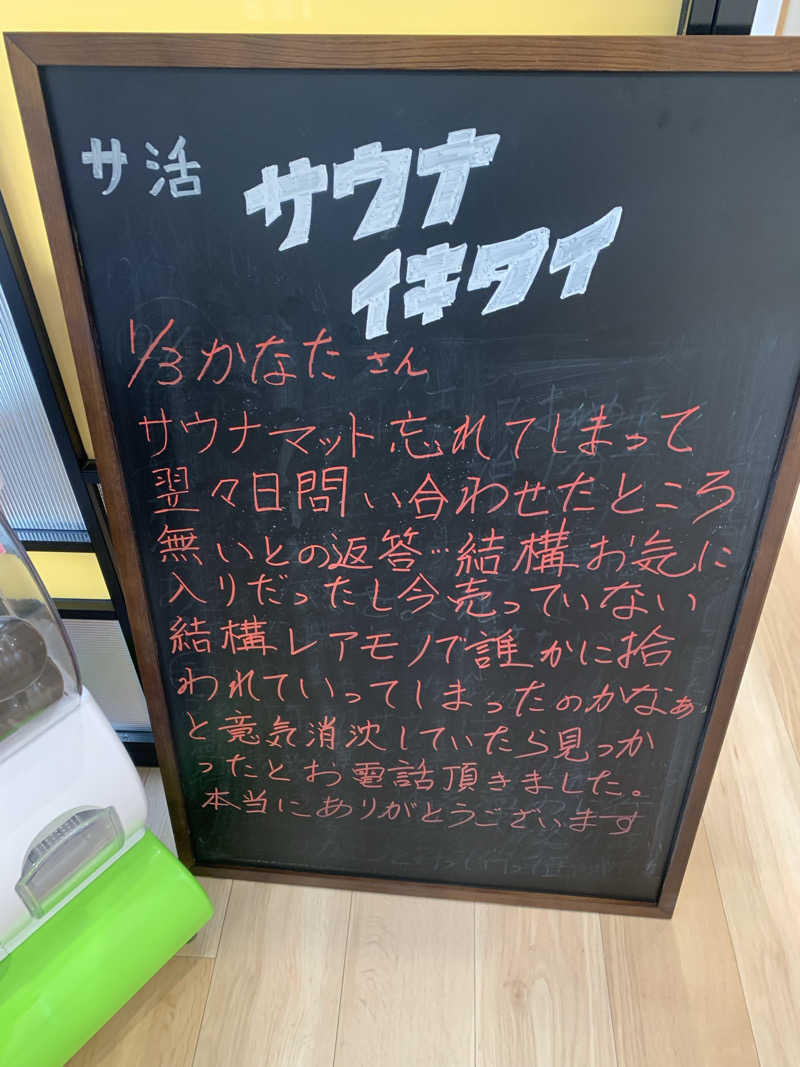 サ活
サウナ
イキタイ
1/3 かなた さん
サウナマット忘れてしまって
翌々日問い合わせたところ
無いとの返答…結構お気に
入りだったし今売っていない
結構レアモノで誰かに拾
われていってしまったのかなぁ
と意気消沈していたら見つか
ったとお電話頂きました。
本当にありがとうございます